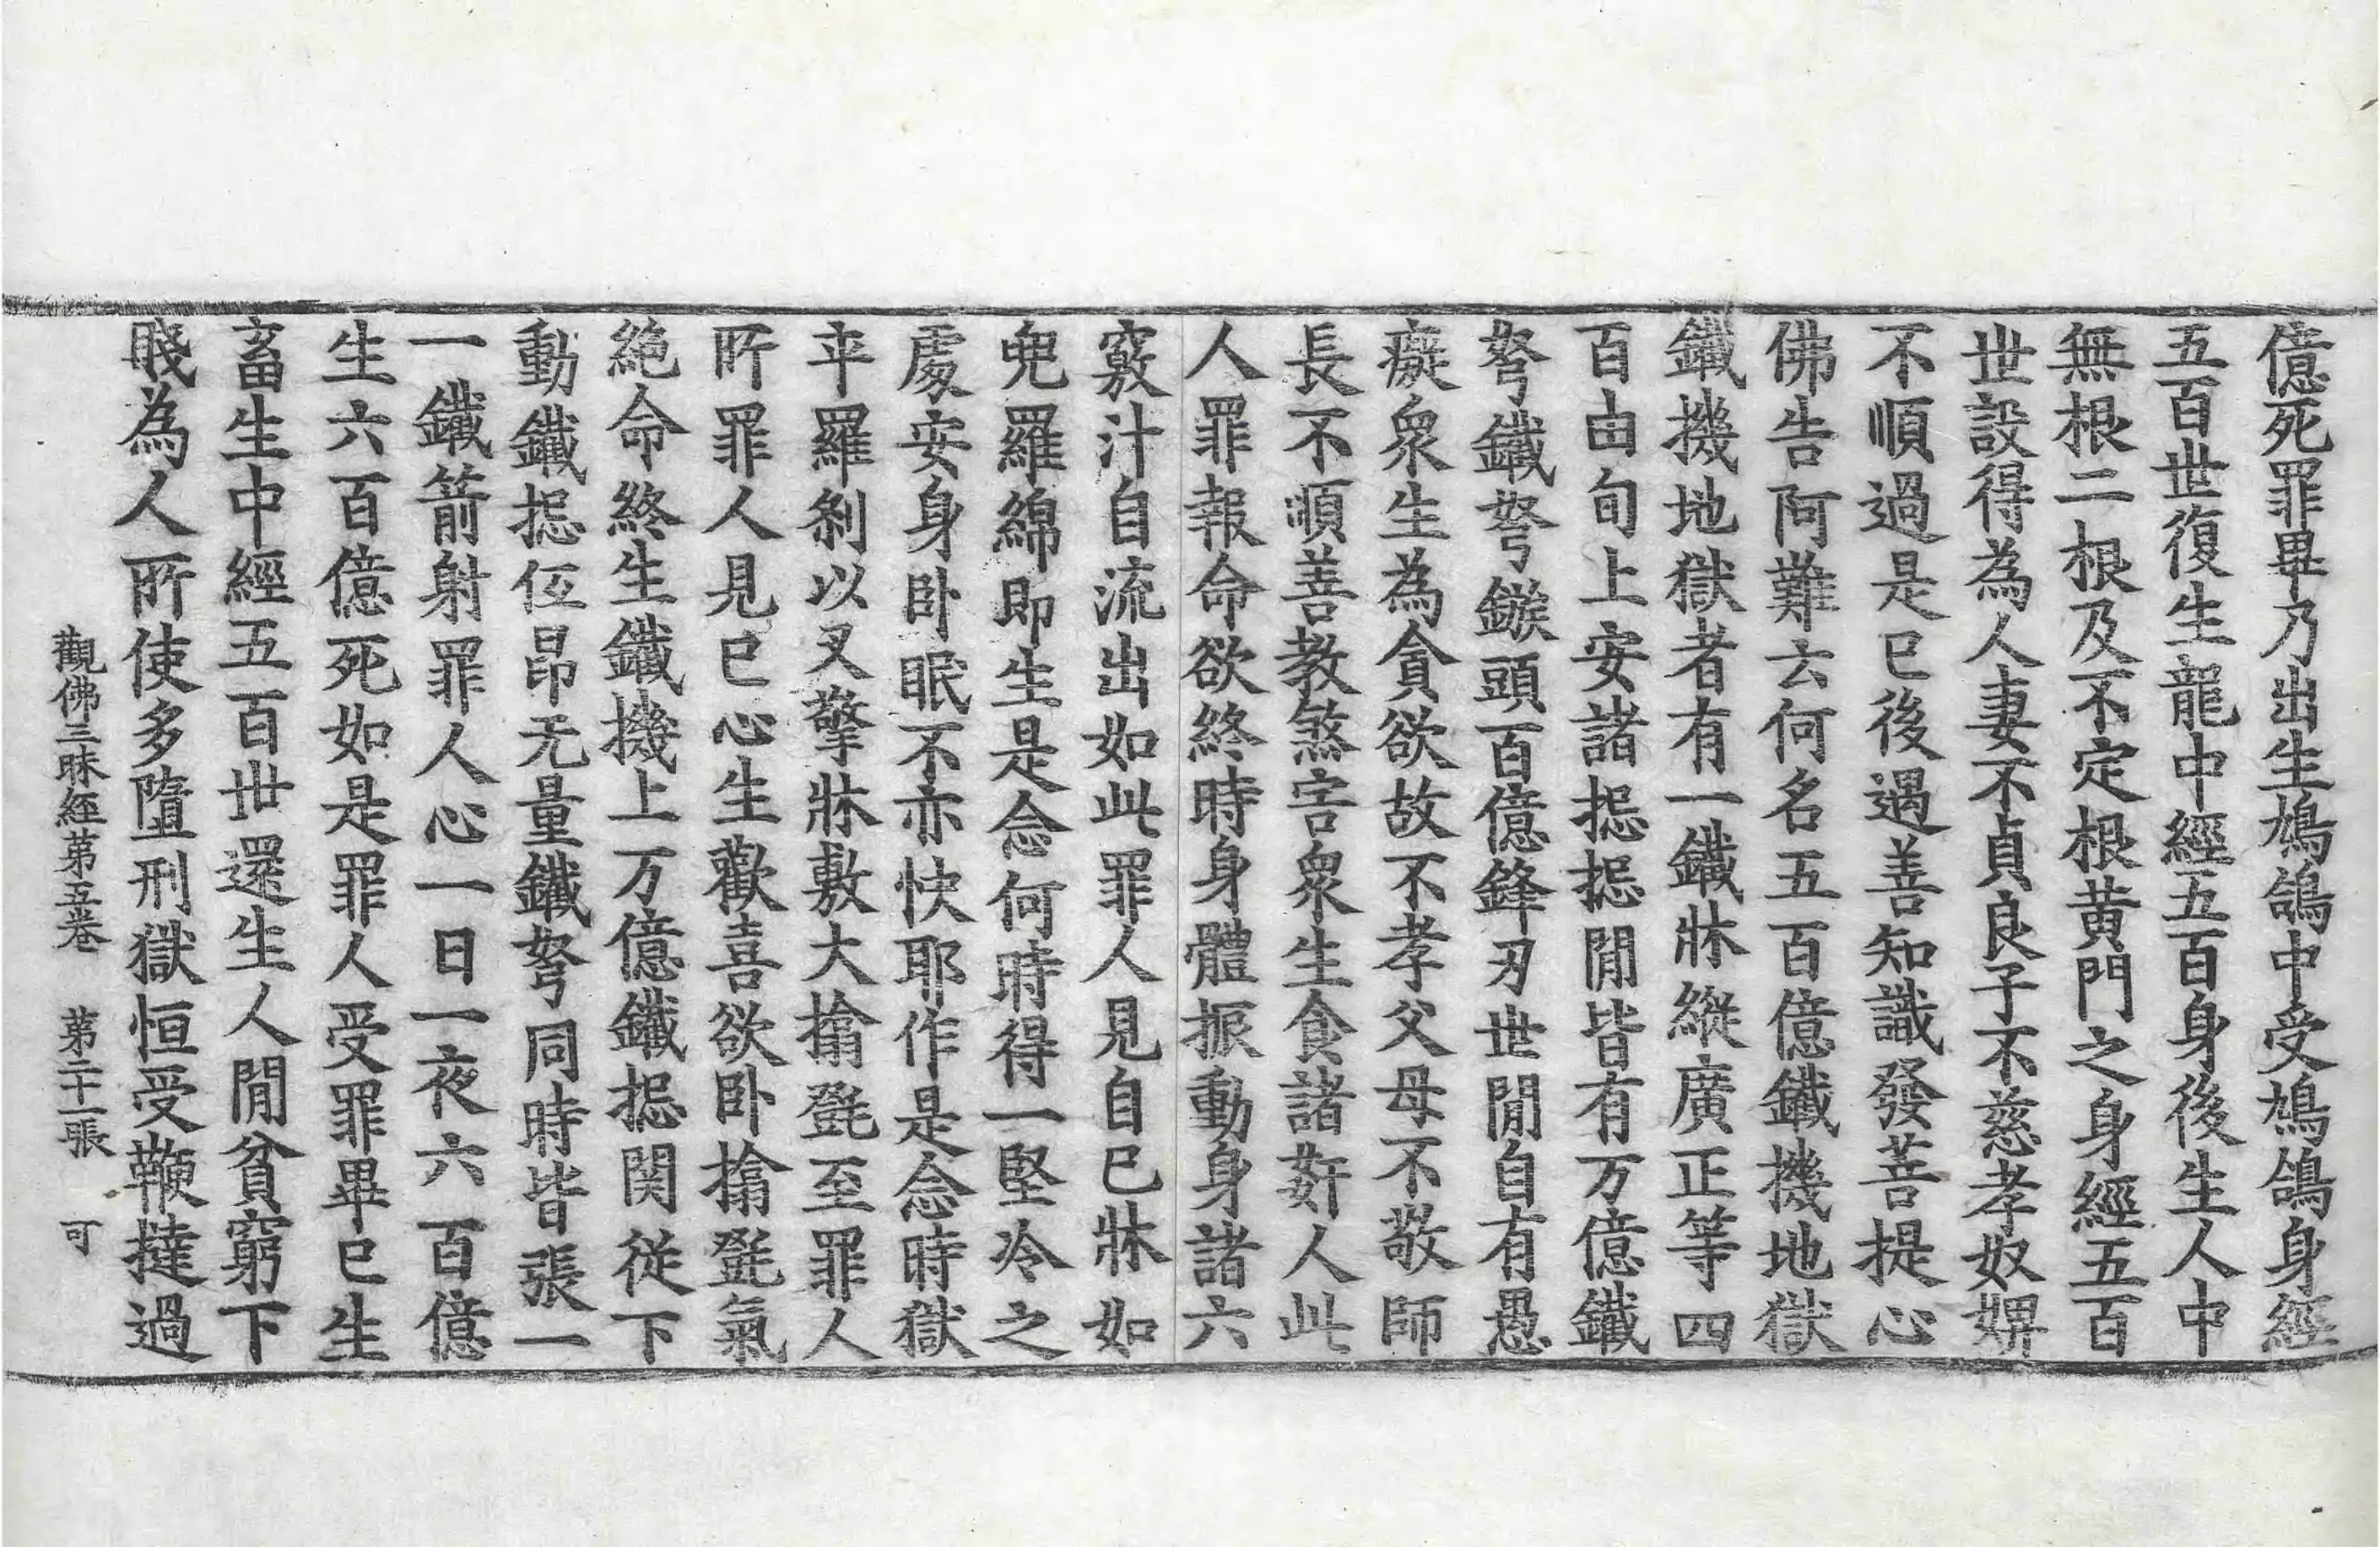 億死罪畢乃出生鳩鴿中受鳩鴿身經
五百世復生龍中經五百身後生人中
無根二根及不定根黃門之身經五百
世設得為人妻不貞良子不慈孝奴婢
不順過是已後遇善知識發菩提心
佛告阿難云何名五百億鐵機地獄
鐵機地獄者有一鐵牀縱廣正等四
百由旬上安諸摠摠間皆有万億鐵
弩鐵弩鏃頭百億鋒刃世間自有愚
癡衆生為貪欲故不孝父母不敬師
長不順善教煞害衆生食諸姧人此
人罪報命欲終時身體振動身諸六
竅汁自流出如此罪人見自已牀如
兜羅綿即生是念何時得一堅冷之
處安身卧眠不亦快耶作是念時獄
卒羅剎以叉擎牀敷大㩉㲪至罪人
所罪人見已心生歡喜欲卧㩉㲪氣
絕命終生鐵機上万億鐵摠関從下
動鐵摠仾昂无量鐵弩同時皆張一
一鐵箭射罪人心一日一夜六百億
生六百億死如是罪人受罪畢已生
畜生中經五百世還生人間貧窮下
賤為人所使多墮刑獄恒受鞭撻過
觀佛三昧經第五卷 第二十一張 可